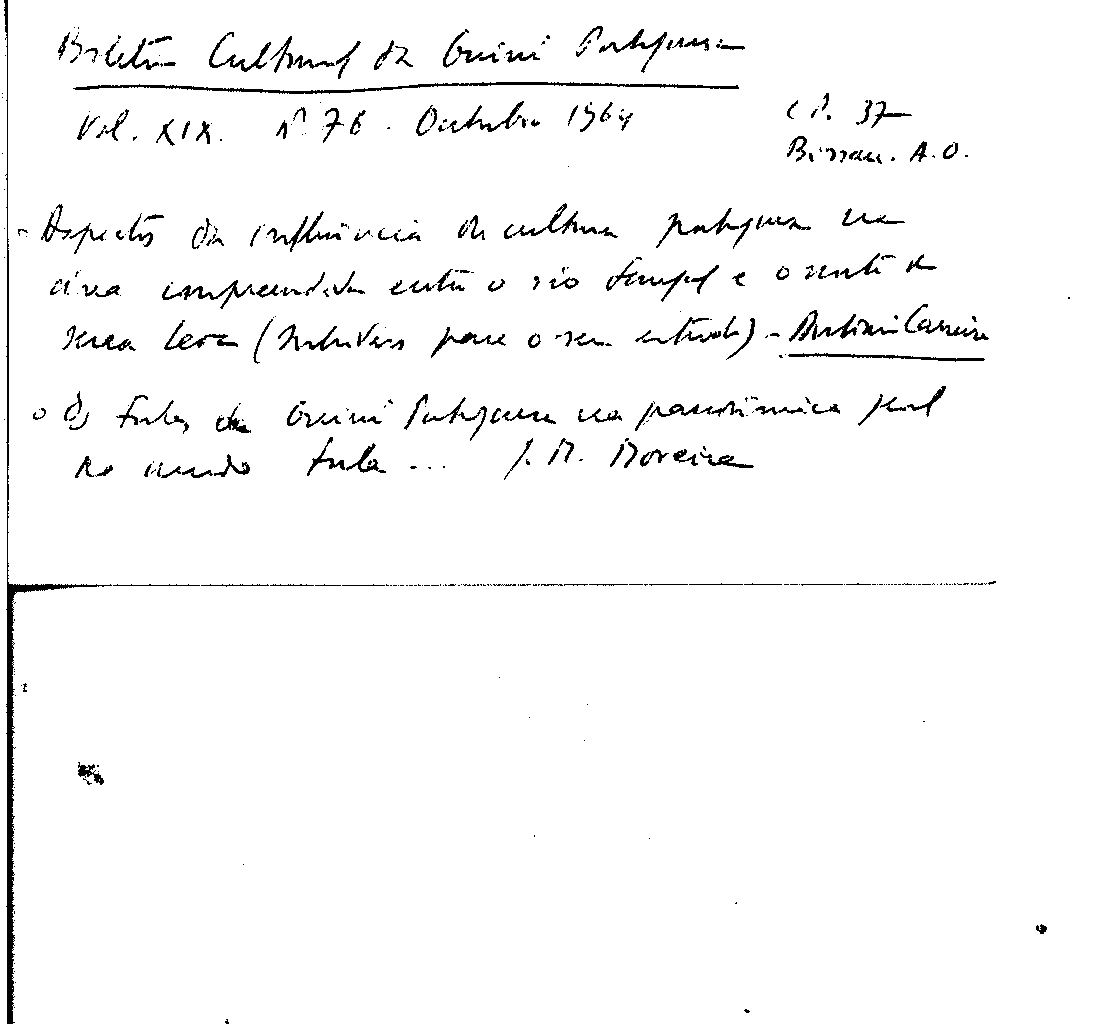 Boletim Cultural da Guiné Portuguesa
Vol. XIX. Nº 76. Outubro 1964
C P. 37
Bissau. A.O.
- Aspectos da influência da cultura portuguesa na
área compreendida entre o rio Senegal e o norte da
Serra Leoa (Subsídios para o seu estudo) - António Carreira
o Os Fulas da Guiné Portuguesa na panorâmica geral
do mundo fula ... J. M. Moreira